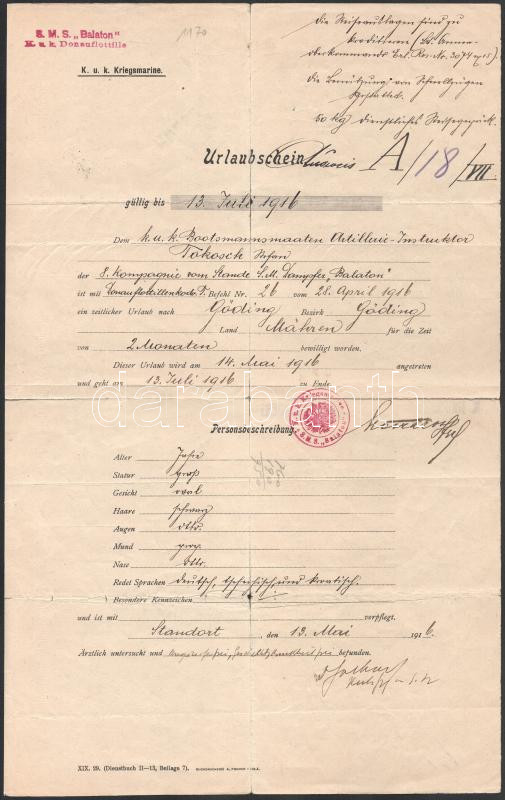 S. M. S. „Balaton"
K. u. k. Donauflottille
1170
K. u. k. Kriegsmarine.
Die Reiseauslagen sind zu
kreditieren
Die Benützung von Schnellzügen
gestattet.
50 kg dienstliches Reisegepäck.
Urlaubschein
A/18/VII
gültig bis 13. Juli 1916
Dem k. u. k. Bootsmannsmaaten Artillerie-Instruktor
Tökosch Stefan
der 8. Kompagnie vom Stande S. M. Dampfer „Balaton"
ist mit Befehl Nr. 26 vom 28. April 1916
ein zeitlicher Urlaub nach Göding Bezirk Göding
Land Mähren für die Zeit
von 2 Monaten bewilligt worden.
Dieser Urlaub wird am 14. Mai 1916 angetreten
und geht am 13. Juli 1916 zu Ende.
darabanth
Personsbeschreibung
Alter Jahre
Statur groß
Gesicht oval
Haare schwarz
Augen dtto.
Mund prop.
Nase dtto.
Redet Sprachen deutsch, tschechisch und kroatisch.
Besondere Kennzeichen
und ist mit verpflegt.
Standort, den 13. Mai 1916.
Ärztlich untersucht und befunden.
XIX. 29. (Dienstbuch II—13, Beilage 7).